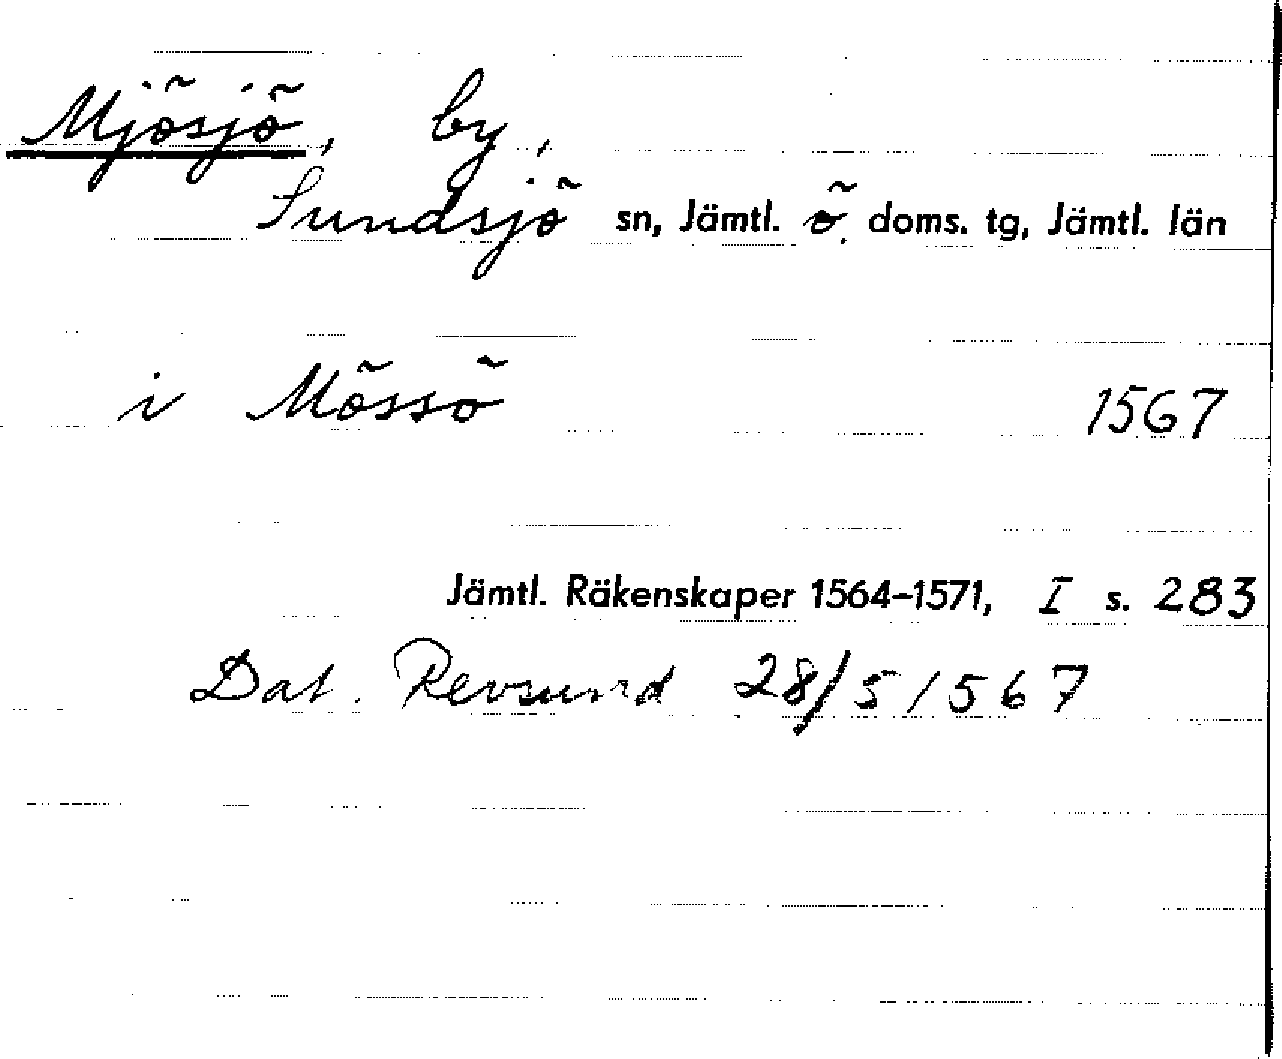 Mjösjö, by,
Sundsjö sn, Jämtl. ö. doms. tg, Jämtl. län
i Mössö 1567
Jämtl. Räkenskaper 1564–1571, I s. 283
Dat. Revsund 28/5 1567